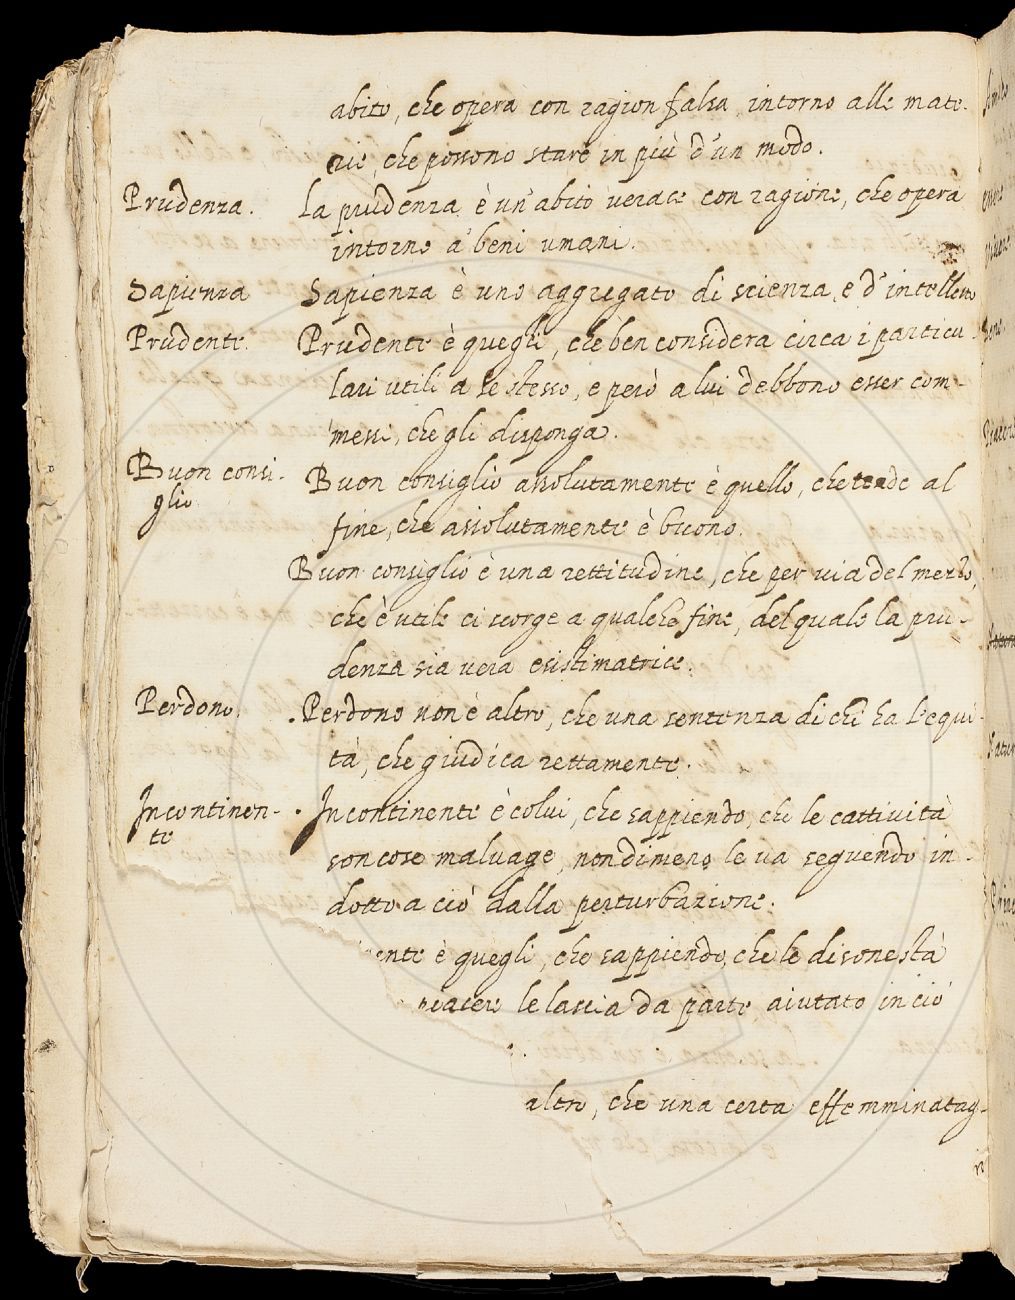 abito, che opera con ragion falsa, intorno alle mate-
rie, che possono stare in più d'un modo.
Prudenza. La prudenza è un'abito verace con ragione, che opera
intorno a' beni umani.
Sapienza Sapienza è uno aggregato di scienza, e d'intelletto
Prudente. Prudente è quegli, che ben considera circa i particu-
lari utili a se stesso, e però a lui debbono esser com-
messi, che gli disponga.
Buon consi-
glio Buon consiglio assolutamente è quello, che tende al
fine, che assolutamente è buono.
Buon consiglio è una rettitudine, che per via del mezzo,
che è utile ci scorge a qualche fine, del quale la pru-
denza sia vera esistimatrice.
Perdono. Perdono non è altro, che una sentenza di chi ha l'equi-
tà, che giudica rettamente.
Incontinen-
te Incontinente è colui, che sappiendo, che le cattività
son cose malvage, nondimeno le va seguendo in-
dotto a ciò dalla perturbazione.
nente è quegli, che sappiendo, che le disonestà
piacere le lascia da parte aiutato in ciò
altro, che una certa effemminatag-